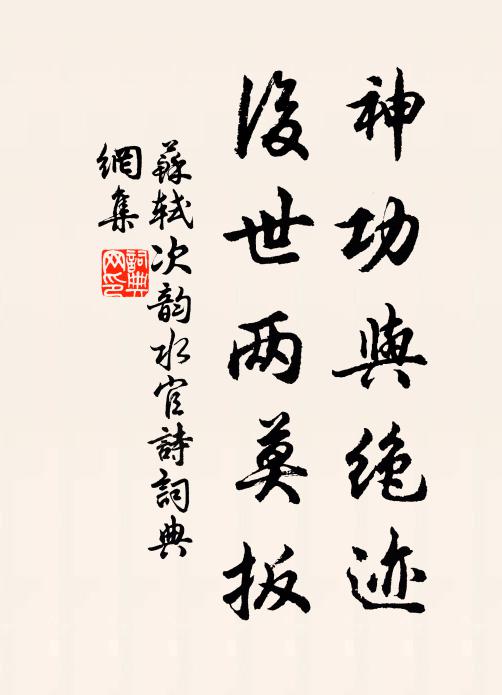 神功與绝迹
後世两莫扳
蘇軾次韵水官詩詞典
網集
詞典网印